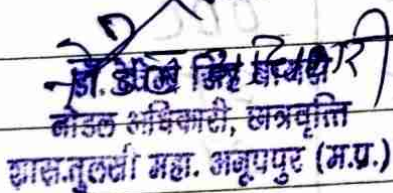 डॉ. सिंह
नोडल अधिकारी, छात्रवृत्ति
शास.तुलसी महा. अनूपपुर (म.प्र.)